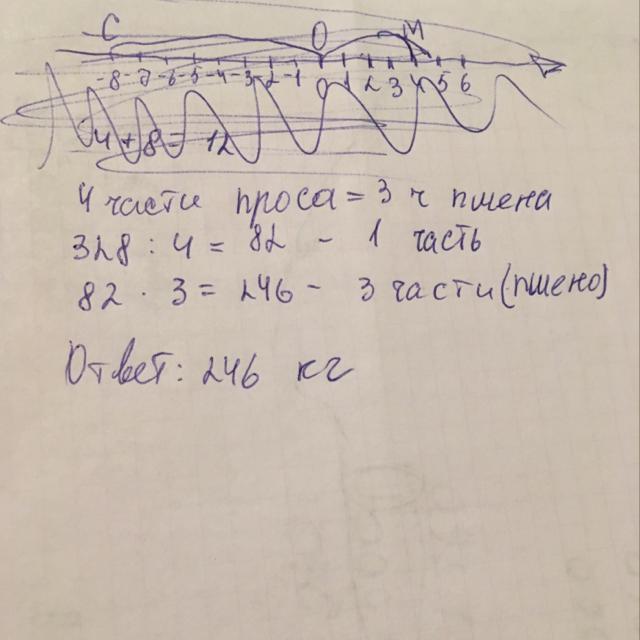 С О М
-8 -7 -6 -5 -4 -3 -2 -1 0 1 2 3 4 5 6
4 + 8 = 12
4 части проса = 3 ч пшена
328 : 4 = 82 - 1 часть
82 · 3 = 246 - 3 части (пшено)
Ответ: 246 кг